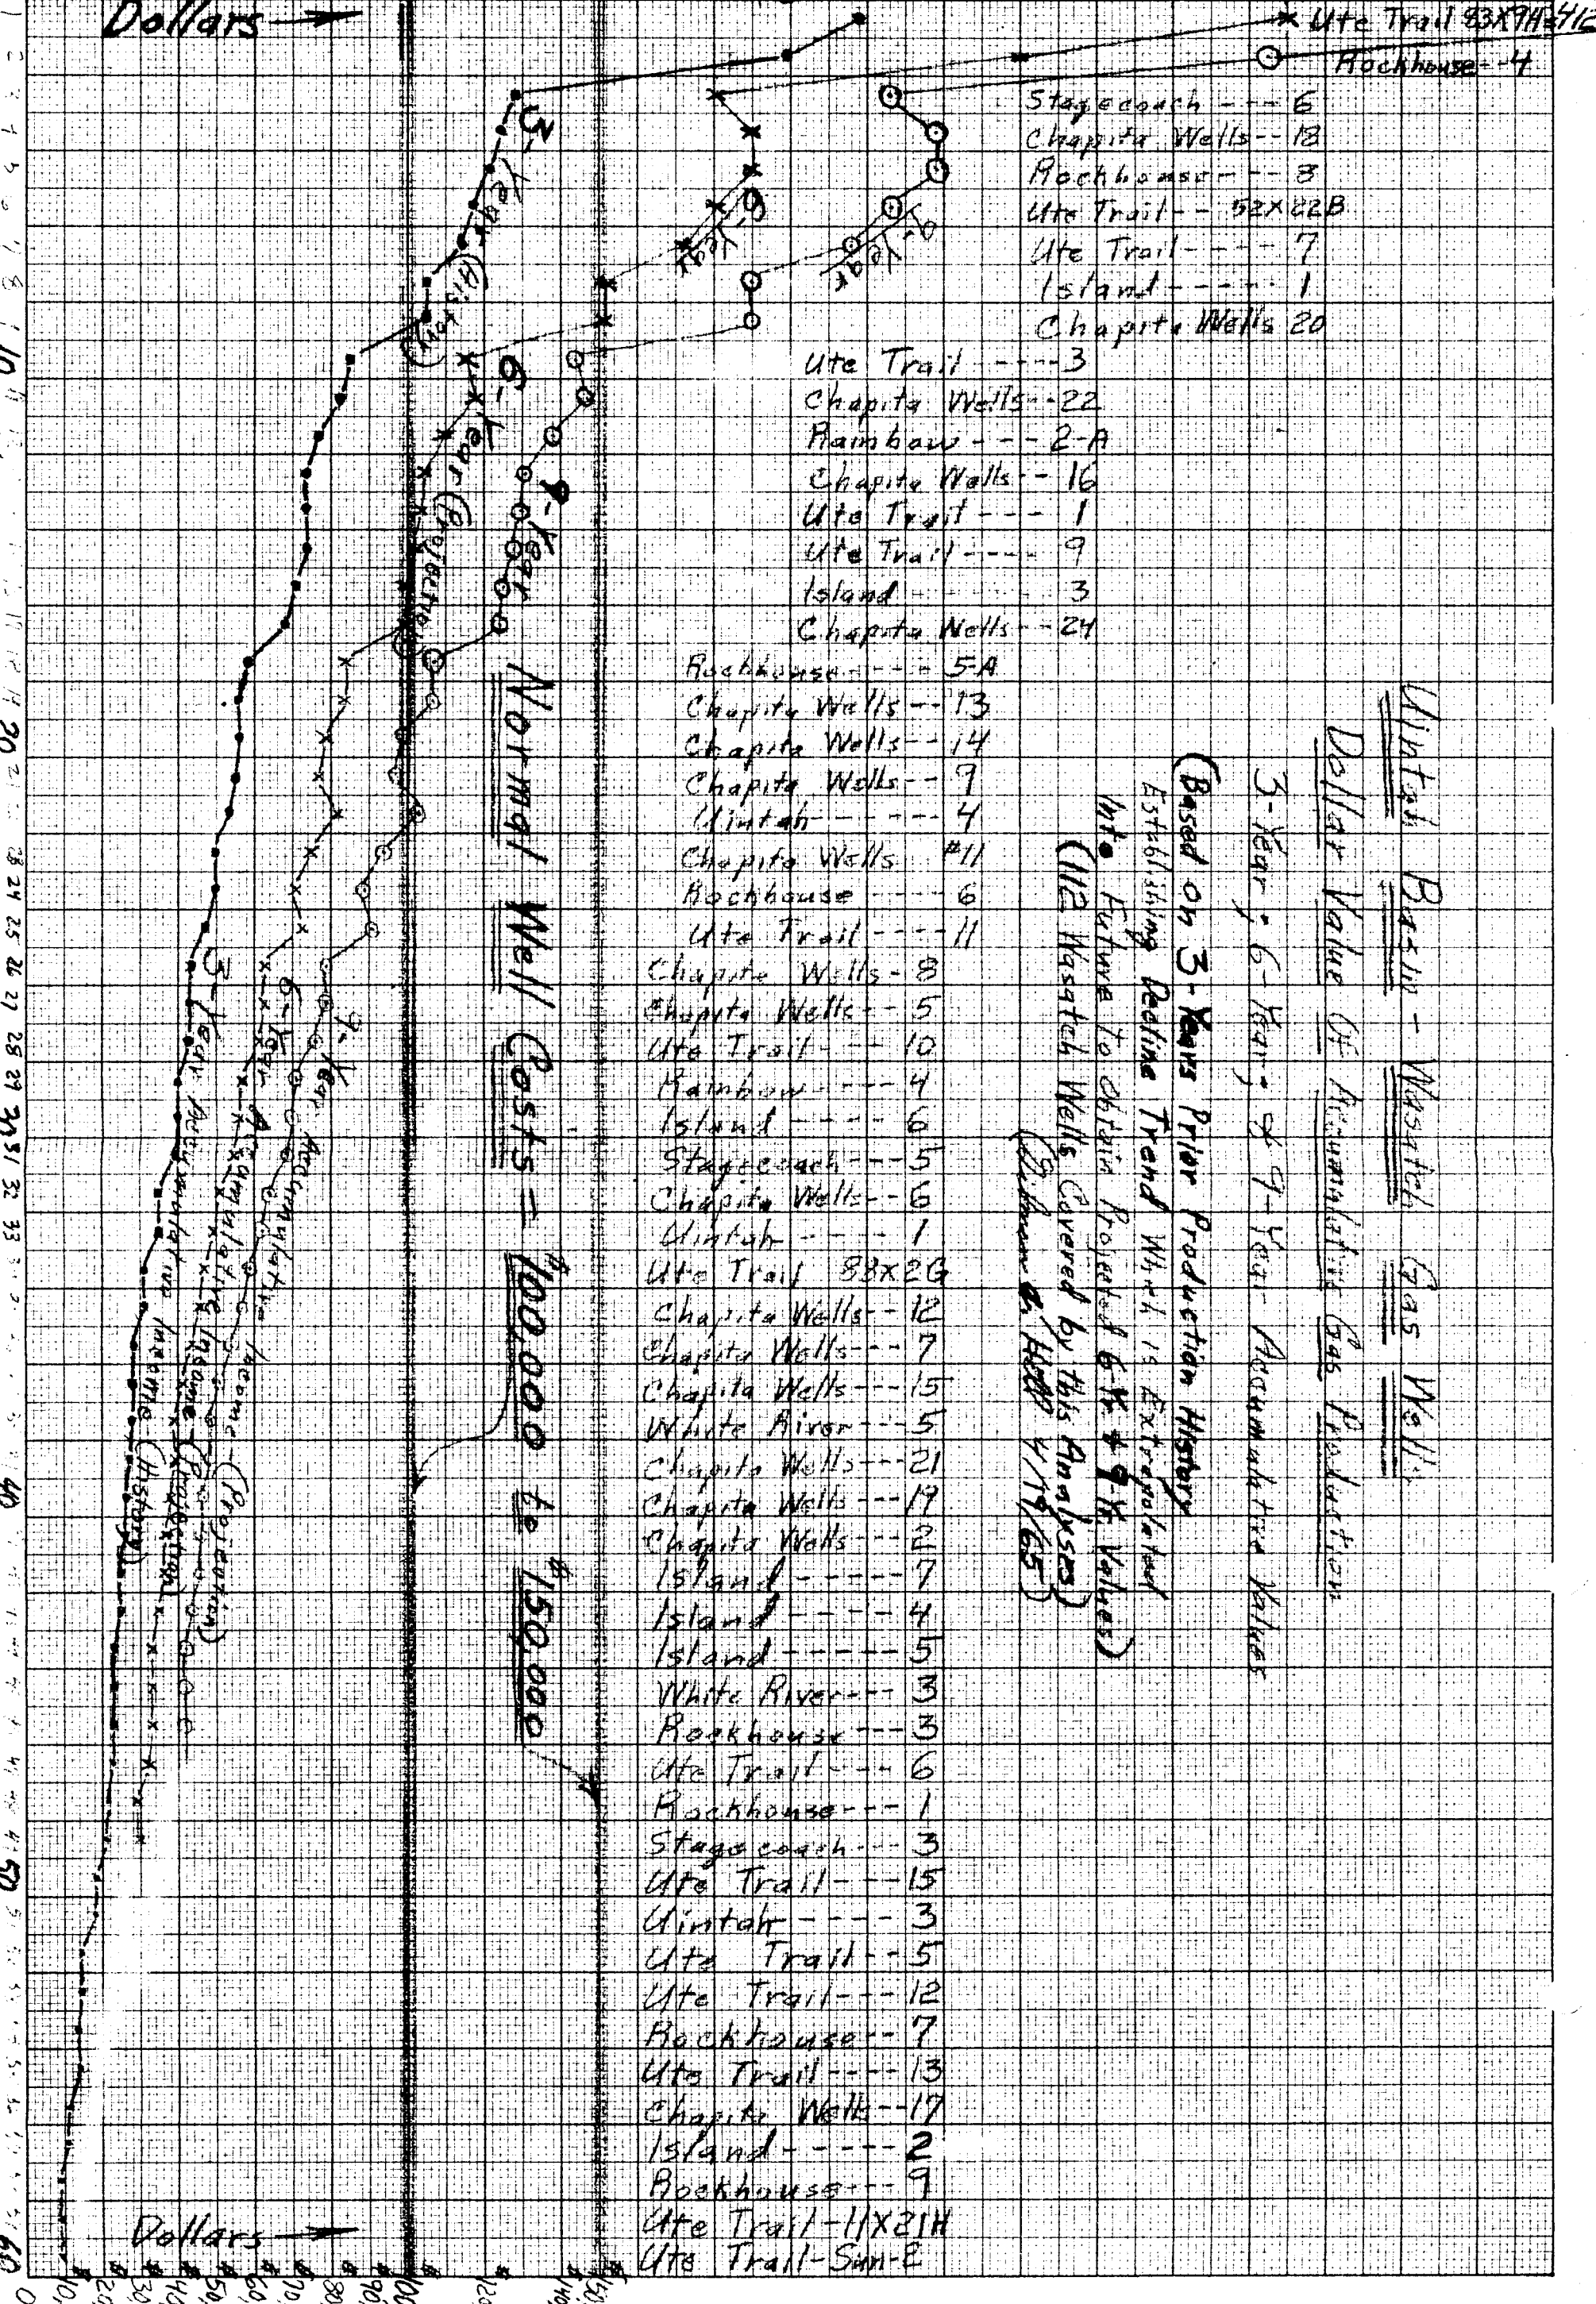 Dollars
Ute Trail 83X9H
Rockhouse--4
Stagecoach --- 6
Chapita Wells-- 18
Rockhouse--- 8
Ute Trail-- 52X22B
Ute Trail---- 7
Island----- 1
Chapita Wells 20
Ute Trail ----3
Chapita Wells--22
Rainbow --- 2-A
Chapita Wells-- 16
Ute Trail --- 1
Ute Trail ---- 9
Island ------ 3
Chapita Wells--24
Rockhouse---- 5-A
Chapita Wells--13
Chapita Wells--14
Chapita Wells-- 9
Uintah------ 4
Chapita Wells #11
Rockhouse ---- 6
Ute Trail ----11
Chapita Wells- 8
Chapita Wells-- 5
Ute Trail--- 10
Rainbow---- 4
Island ---- 6
Stagecoach---5
Chapita Wells--6
Uintah---- 1
Ute Trail 83X2G
Chapita Wells--12
Chapita Wells--- 7
Chapita Wells---15
White River---5
Chapita Wells---21
Chapita Wells---19
Chapita Wells---2
Island-----7
Island ----4
Island-----5
White River---3
Rockhouse---3
Ute Trail---6
Rockhouse---1
Stagecoach---3
Ute Trail---15
Uintah-----3
Ute Trail--5
Ute Trail---12
Rockhouse--7
Ute Trail----13
Chapita Wells--17
Island-----2
Rockhouse---9
Ute Trail-11X21H
Ute Trail-Sun-2
Uintah Basin - Wasatch Gas Wells
Dollar Value Of Accumulative Gas Production
3-Year; 6-Year; & 9-Year Accumulative Values
(Based on 3-Years Prior Production History
Establishing Decline Trend Which is Extrapolated
Into Future to Obtain Projected 6 Yr & 9 Yr Values)
(112 Wasatch Wells Covered by this Analyses)
4/19/65)
3-Year (History)
6-Year
9-Year
6-Year (Projection)
9-Year
Normal Well Costs = $100,000 to $150,000
9-Year Accumulative Income (Projection)
6-Year Accumulative Income (Projection)
3-Year Accumulative Income (History)
Dollars
10
20
24 25 26 27 28 29 30 31 32 33
40
50
60
0